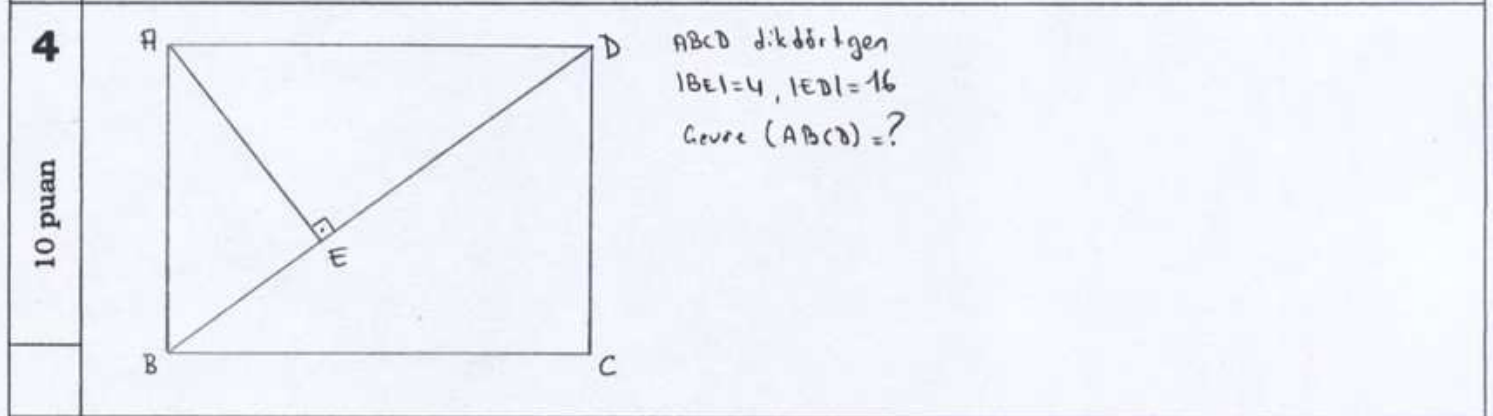 4
10 puan
A
D
E
B
C
ABCD dikdörtgen
|BE|=4, |ED|=16
Çevre (ABCD)=?